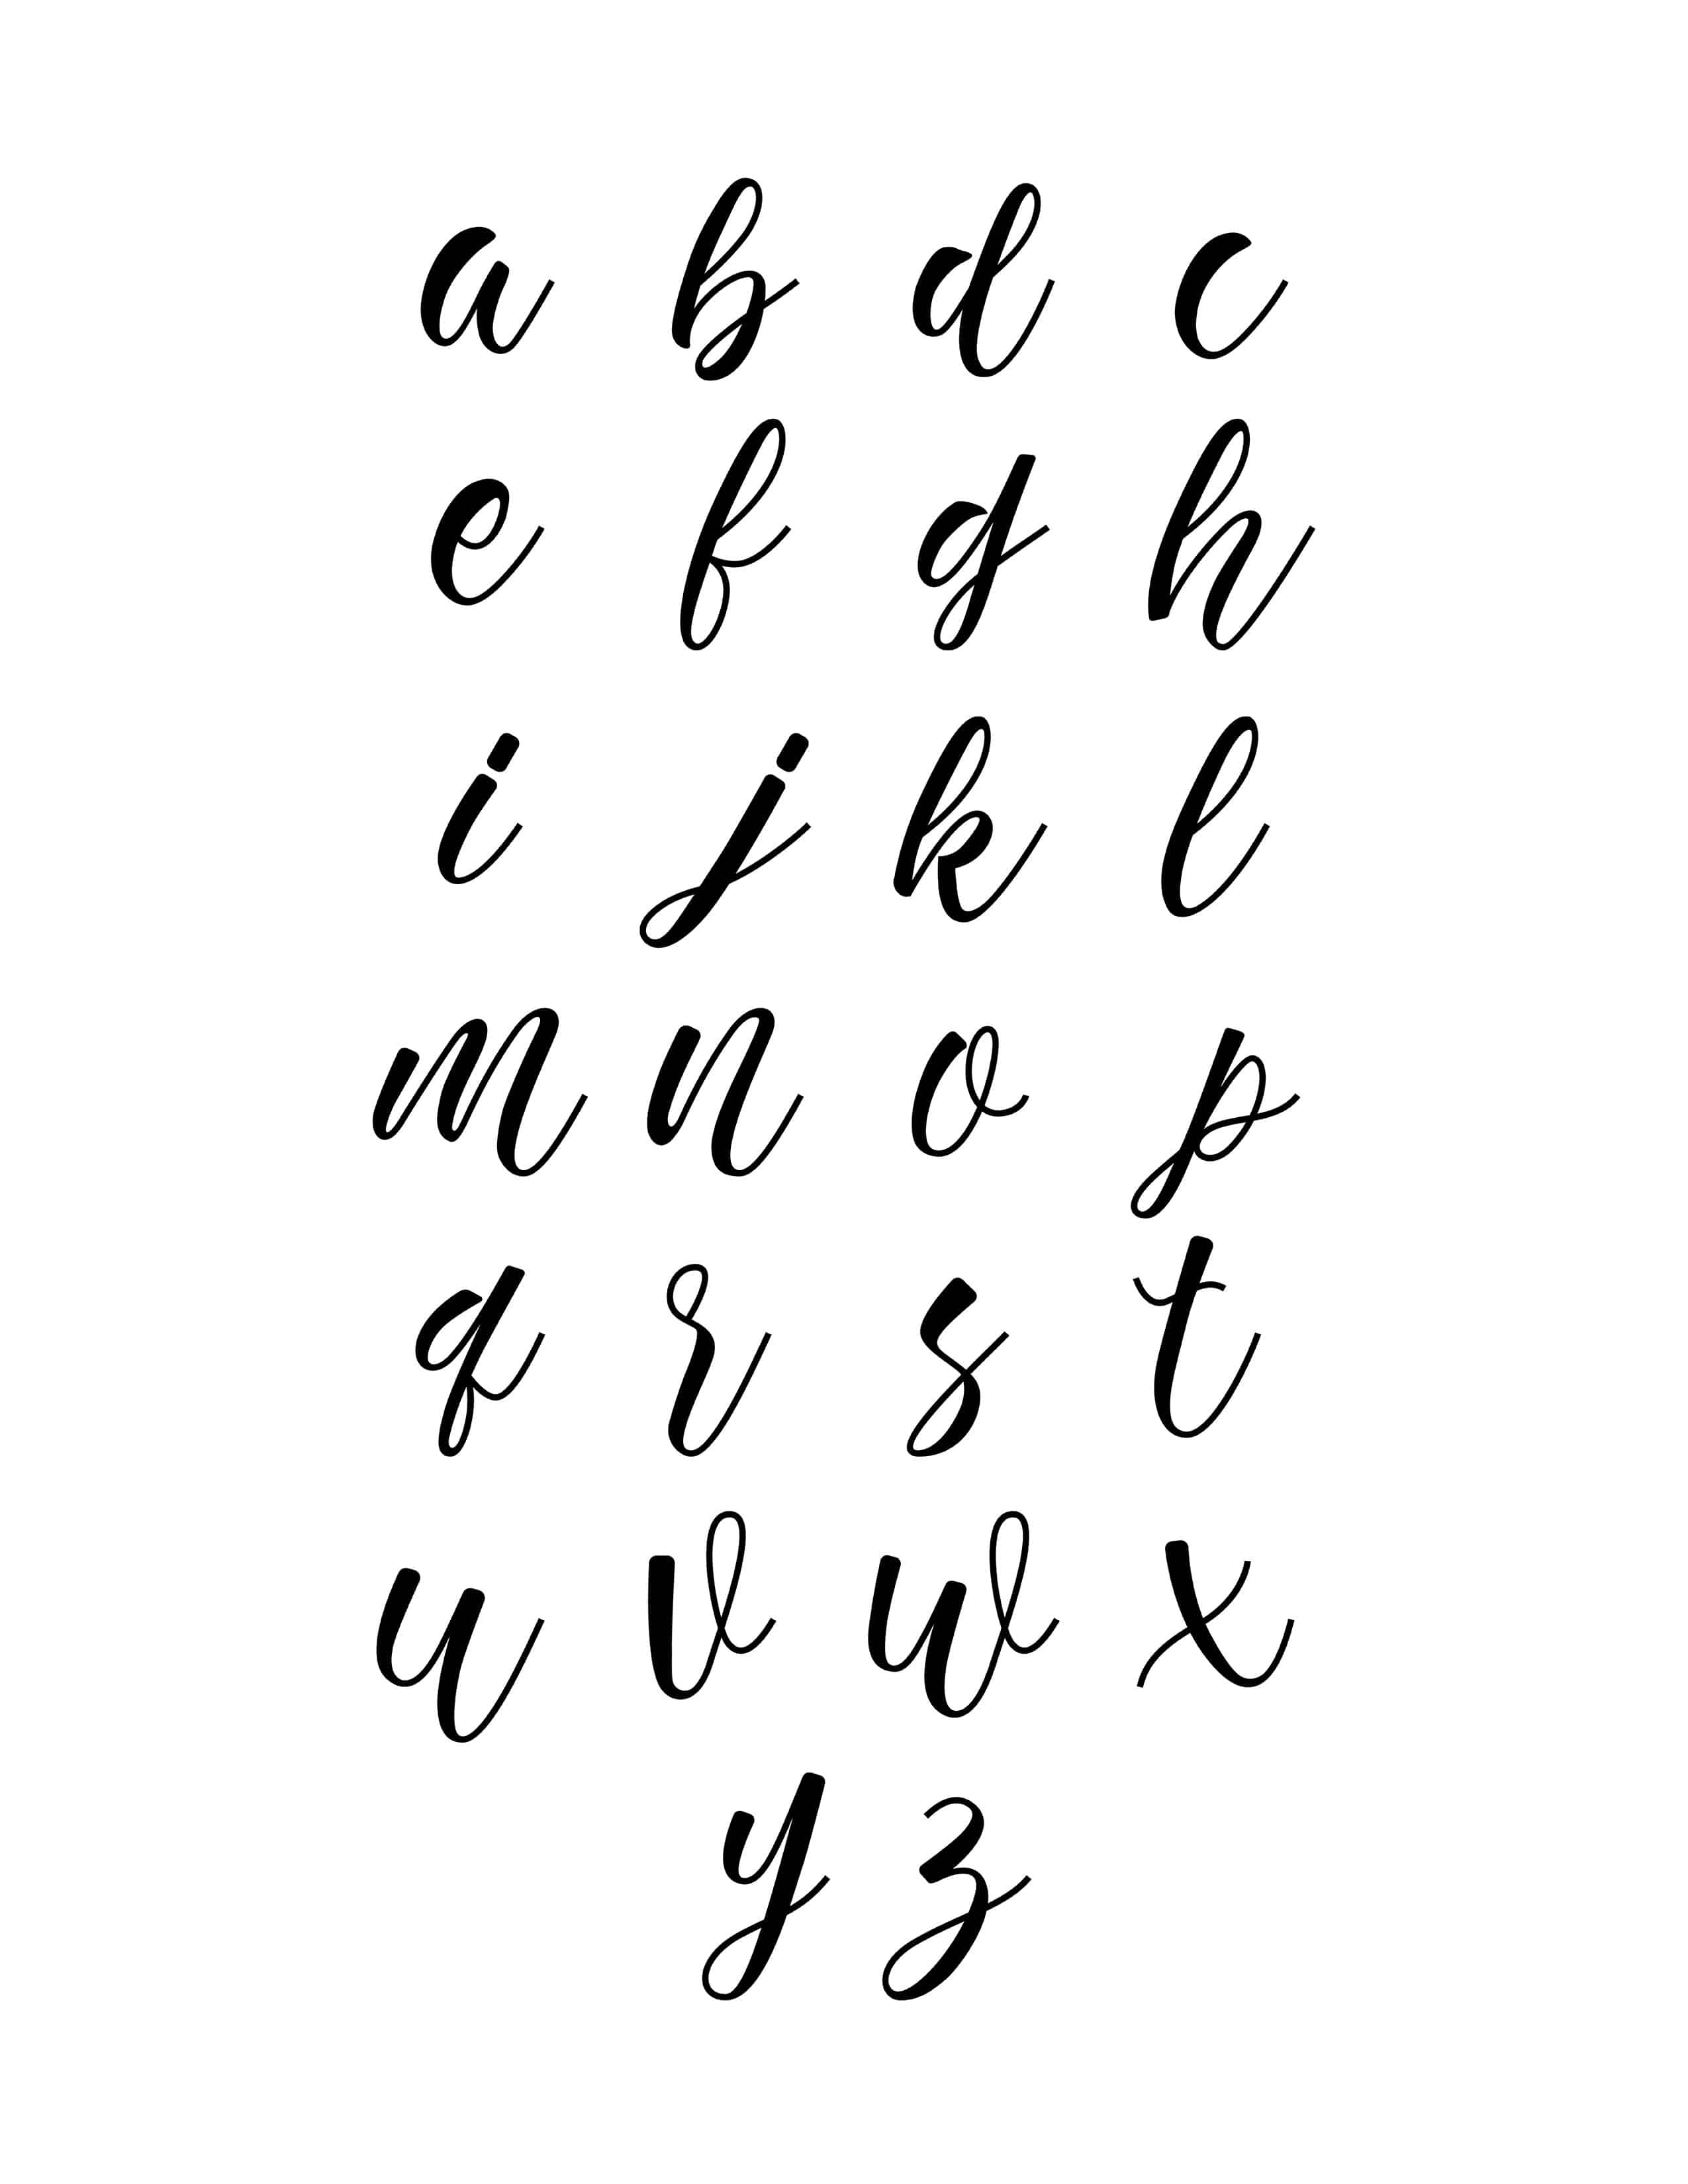 a b d c
e f g h
i j k l
m n o p
q r s t
u v w x
y z